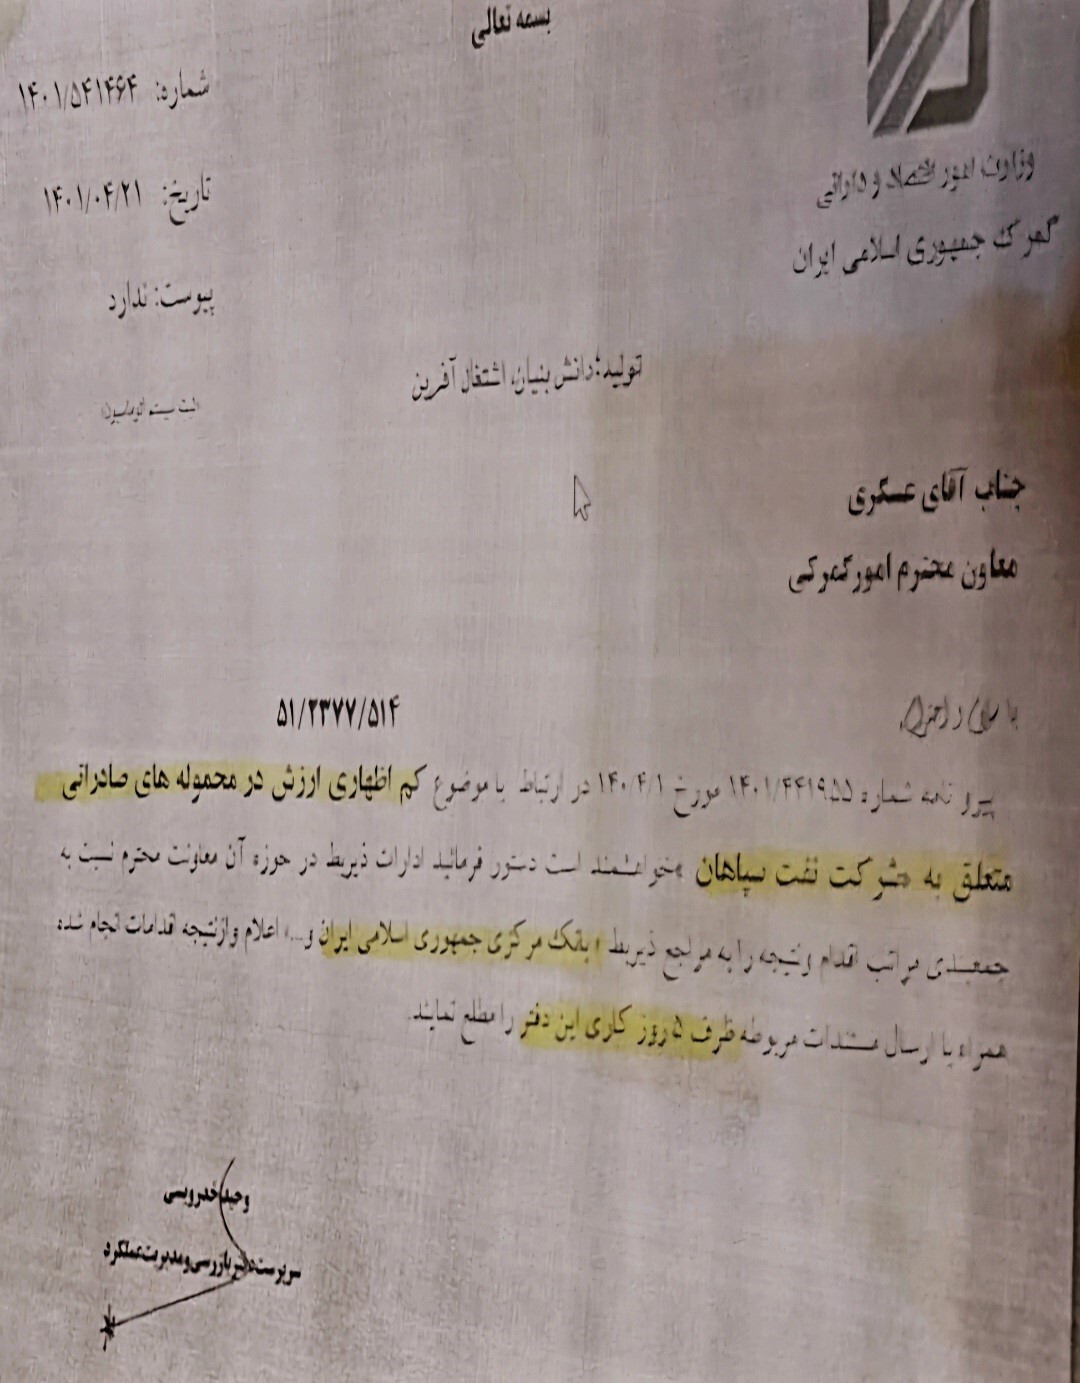 بسمه تعالی
شماره: ۱۴۰۱/۵۴۱۴۶۴
تاریخ: ۱۴۰۱/۰۴/۲۱
پیوست: ندارد
وزارت امور اقتصاد و دارائی
گمرک جمهوری اسلامی ایران
تولید؛ دانش بنیان، اشتغال آفرین
جناب آقای عسکری
معاون محترم امور گمرکی
با سلام و احترام،
۵۱/۲۳۷۷/۵۱۴
پیرو نامه شماره ۱۴۰۱/۴۴۱۹۵۵ مورخ ۱۴۰/۴/۱ در ارتباط با موضوع کم اظهاری ارزش در محموله های صادراتی
متعلق به «شرکت نفت سپاهان» خواهشمند است دستور فرمائید ادارات ذیربط در حوزه آن معاونت محترم نسبت به
جمعبندی مراتب اقدام ونتیجه را به مراجع ذیربط « بانک مرکزی جمهوری اسلامی ایران و...» اعلام وازنتیجه اقدامات انجام شده
همراه با ارسال مستندات مربوطه ظرف ۵ روز کاری این دفتر را مطلع نمایند.
وحید خدرویسی
سرپرست دفتر بازرسی و مدیریت عملکرد